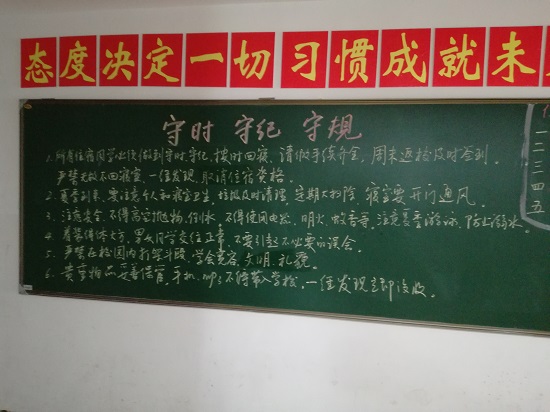 态度决定一切习惯成就未
守时 守纪 守规
1. 所有住宿同学必须做到守时守纪,按时回寝,请假手续齐全,周末返校及时签到。
严禁无故不回寝室,一经发现,取消住宿资格。
2. 夏季到来,要注意个人和寝室卫生,垃圾及时清理,定期大扫除,寝室要开门通风。
3. 注意安全,不得高空抛物、倒水,不得使用电器、明火、蚊香等,注意夏季游泳,防止溺水。
4. 着装得体大方,男女同学交往正常,不要引起不必要的误会。
5. 严禁在校园内打架斗殴,学会宽容,文明,礼貌。
6. 贵重物品妥善保管,手机、mp3不得带入学校,一经发现立即没收。
一
二
三
四
五